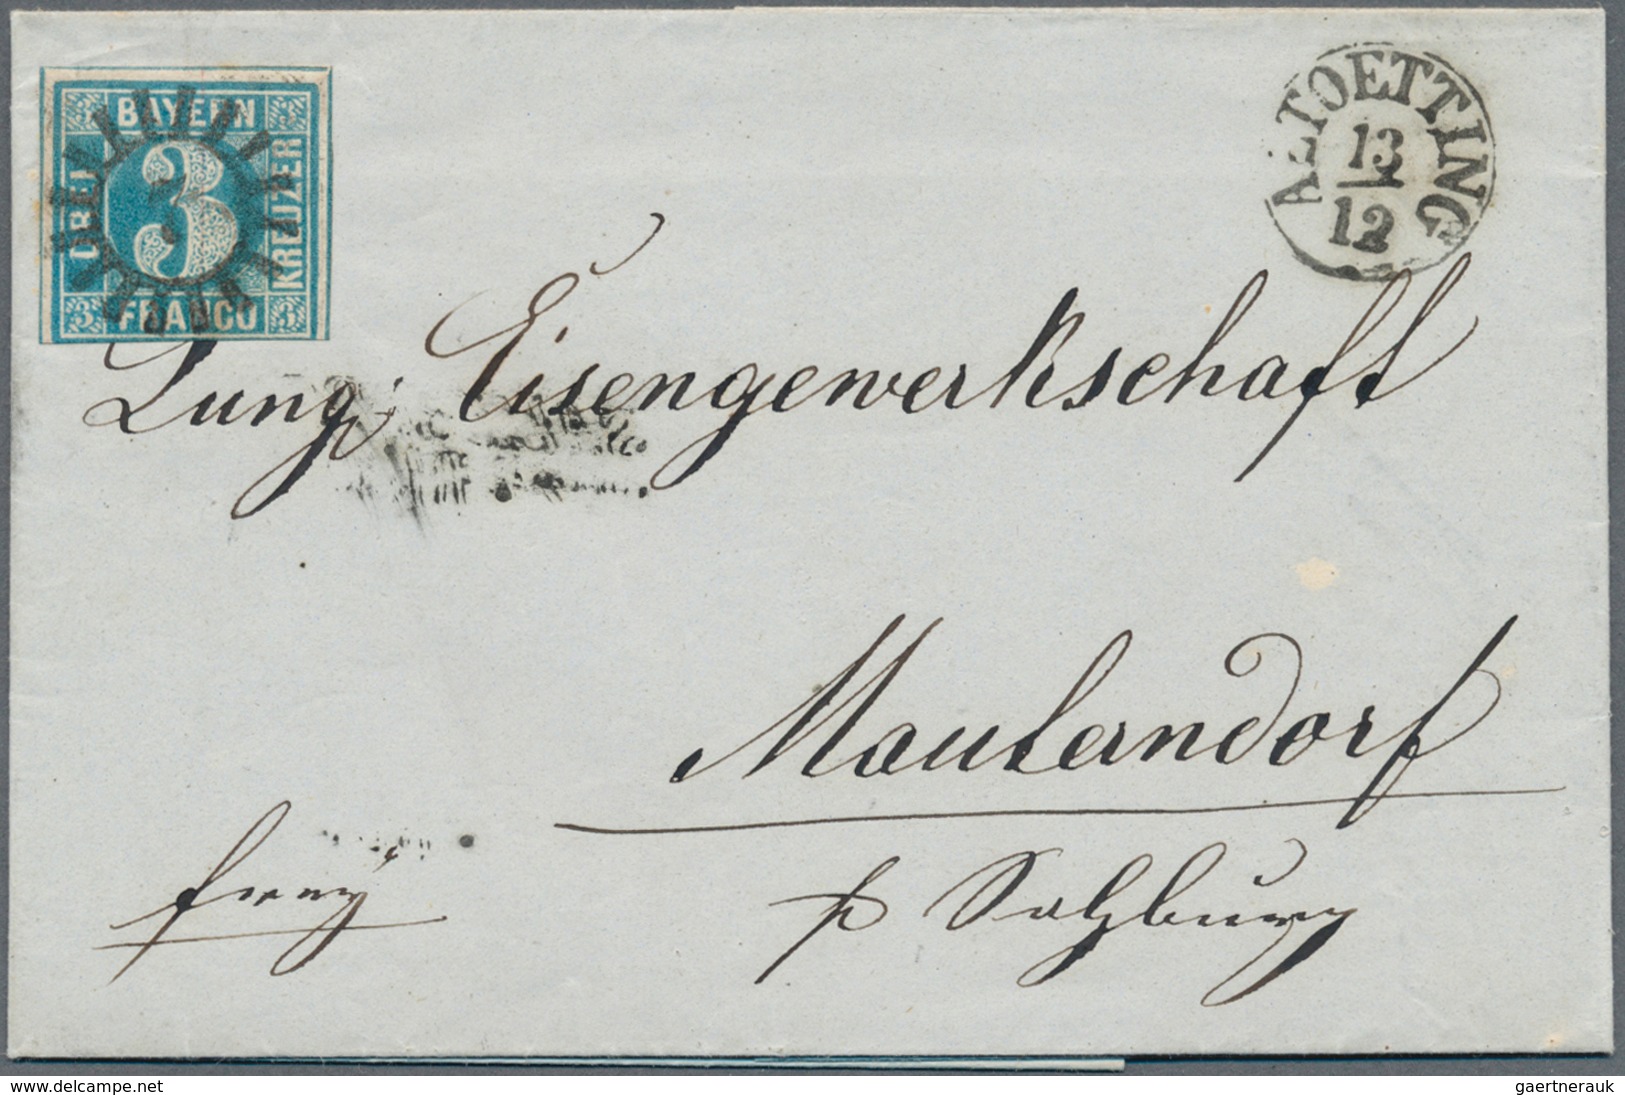 BAYERN
DREI
KREUZER
3
FRANCO
3 3
ALTOETTING
13
12
Lung: Eisengewerkschaft
Mauterndorf
frey
pr Salzburg
www.delcampe.net
gaertnerauk